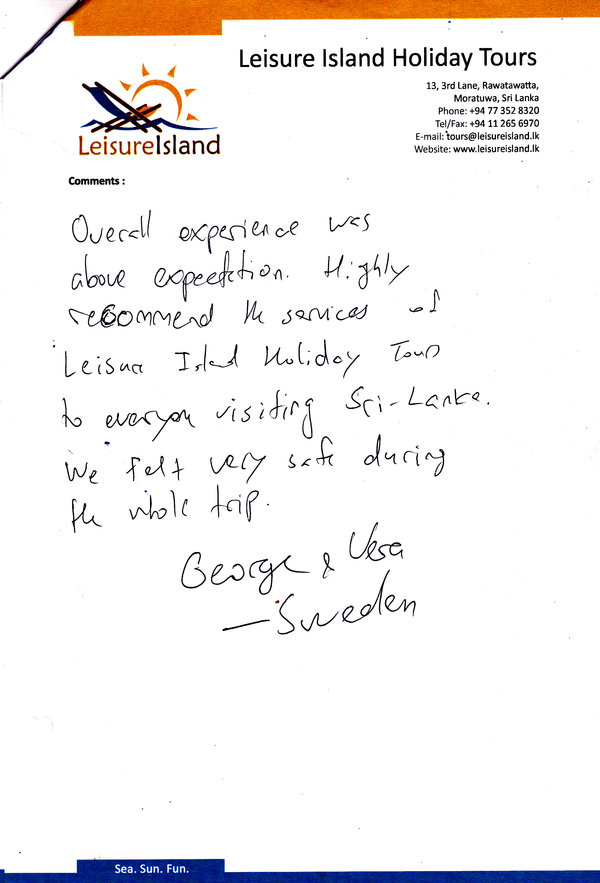 Leisure Island Holiday Tours
13, 3rd Lane, Rawatawatta,
Moratuwa, Sri Lanka
Phone: +94 77 352 8320
Tel/Fax: +94 11 265 6970
E-mail: tours@leisureisland.lk
Website: www.leisureisland.lk
LeisureIsland
Comments :
Overall experience was
above expectation. Highly
recommend the services of
Leisure Island Holiday Tours
to everyone visiting Sri-Lanka.
We felt very safe during
the whole trip.
George & Vera
— Sweden
Sea. Sun. Fun.